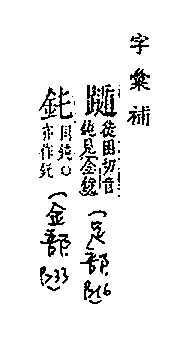 字彙補
徒困切音
鈍見金鏡
(足部
B16)
鈍
同鈍〇
亦作
(金部
B33)